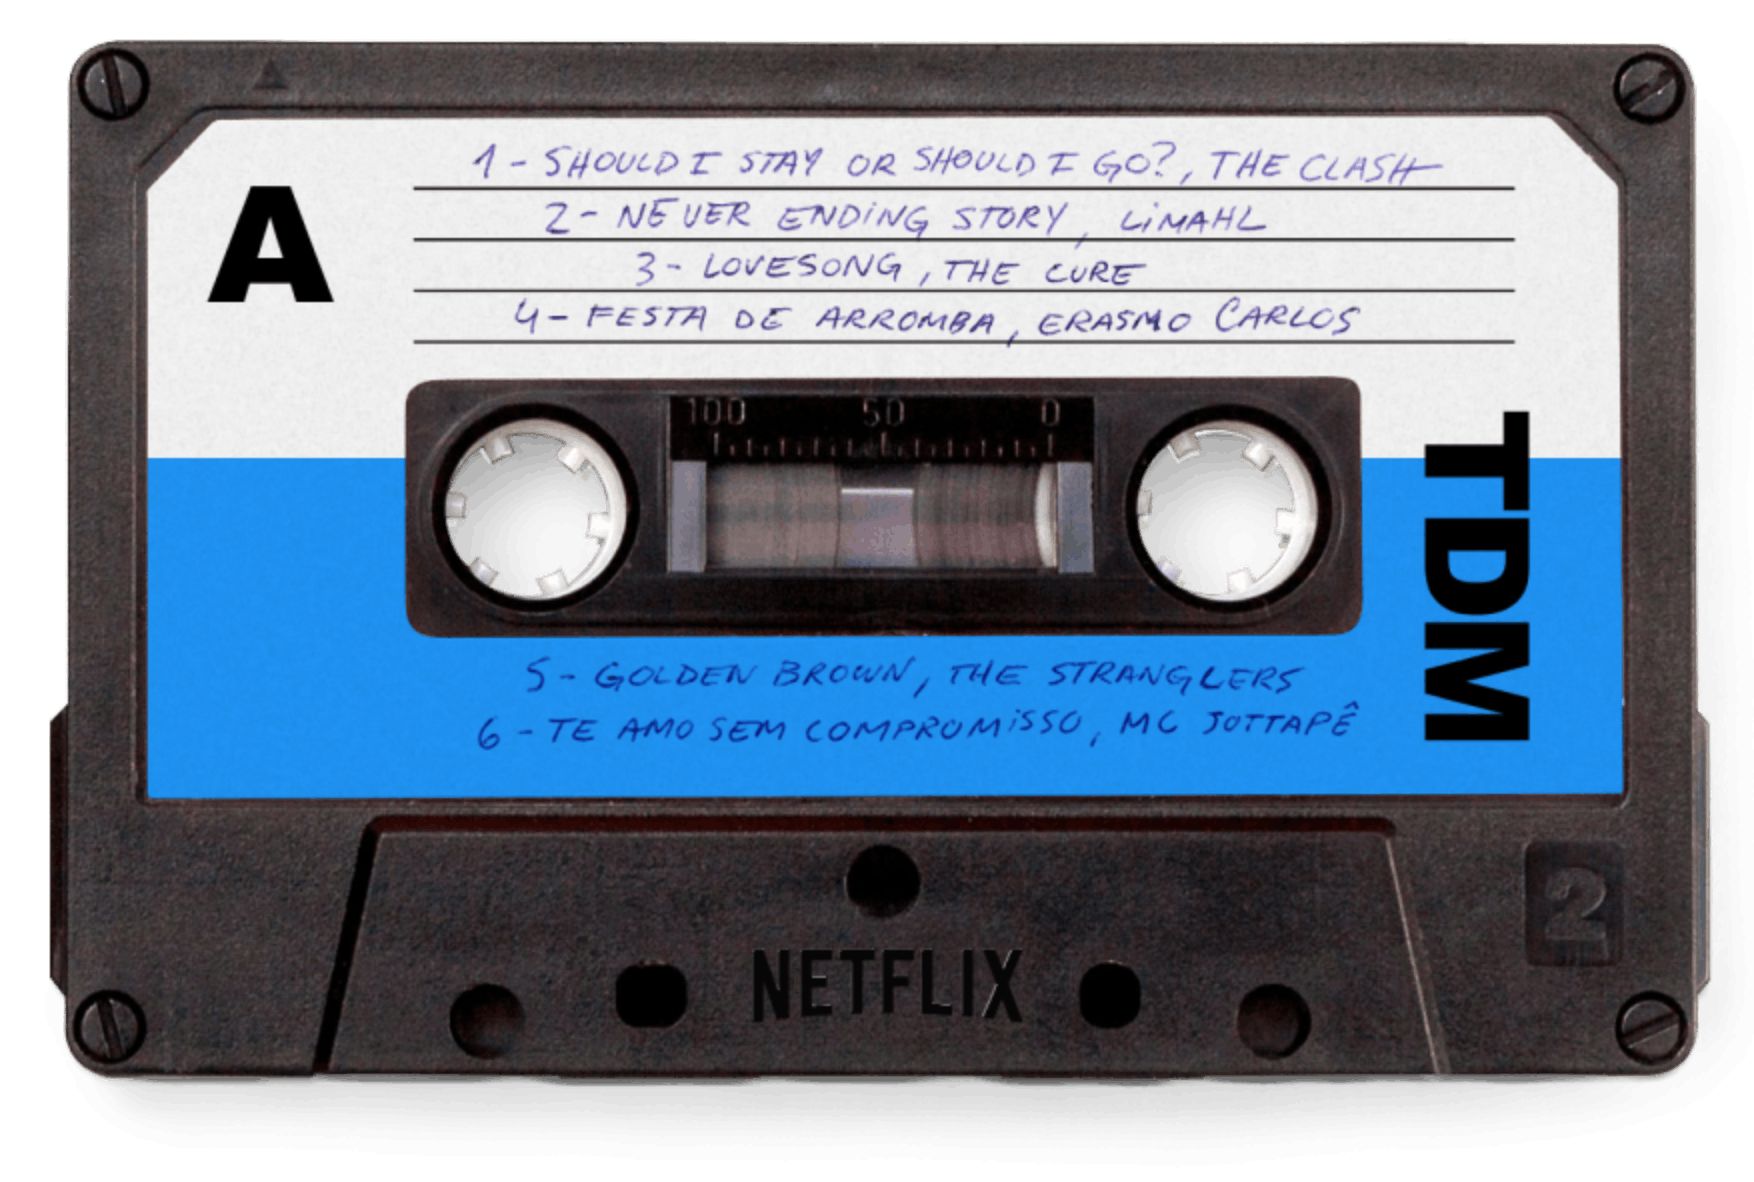 1 - SHOULD I STAY OR SHOULD I GO?, THE CLASH
A
2 - NEVER ENDING STORY, LiMAHL
3 - LOVESONG, THE CURE
4 - FESTA DE ARROMBA, ERASMO CARLOS
100 50 0
TDM
5 - GOLDEN BROWN, THE STRANGLERS
6 - TE AMO SEM COMPROMiSSO, MC JOTTAPÊ
2
NETFLIX